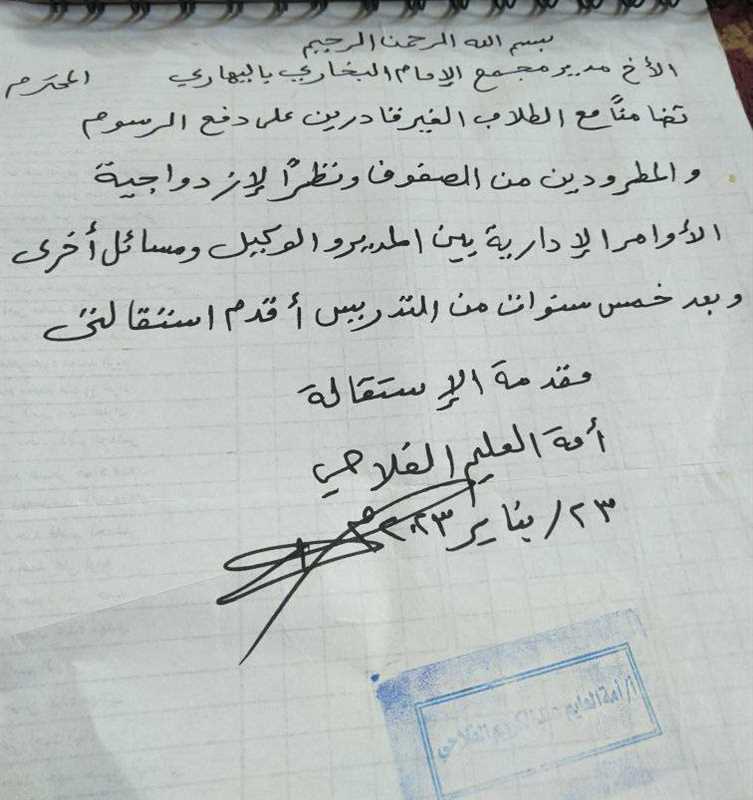 بسم الله الرحمن الرحيم
الأخ مدير مجمع الإمام البخاري باليهاري المحترم
تضامناً مع الطلاب الغير قادرين على دفع الرسوم
والمطرودين من الصفوف ونظراً لإزدواجية
الأوامر الإدارية بين المدير والوكيل ومسائل أخرى
وبعد خمس سنوات من التدريس أقدم استقالتي
مقدمة الإستقالة
أمة العليم الفلاحي
٢٣/يناير ٢٠٢٣م
أ/أمة العليم عبدالكريم الفلاحي